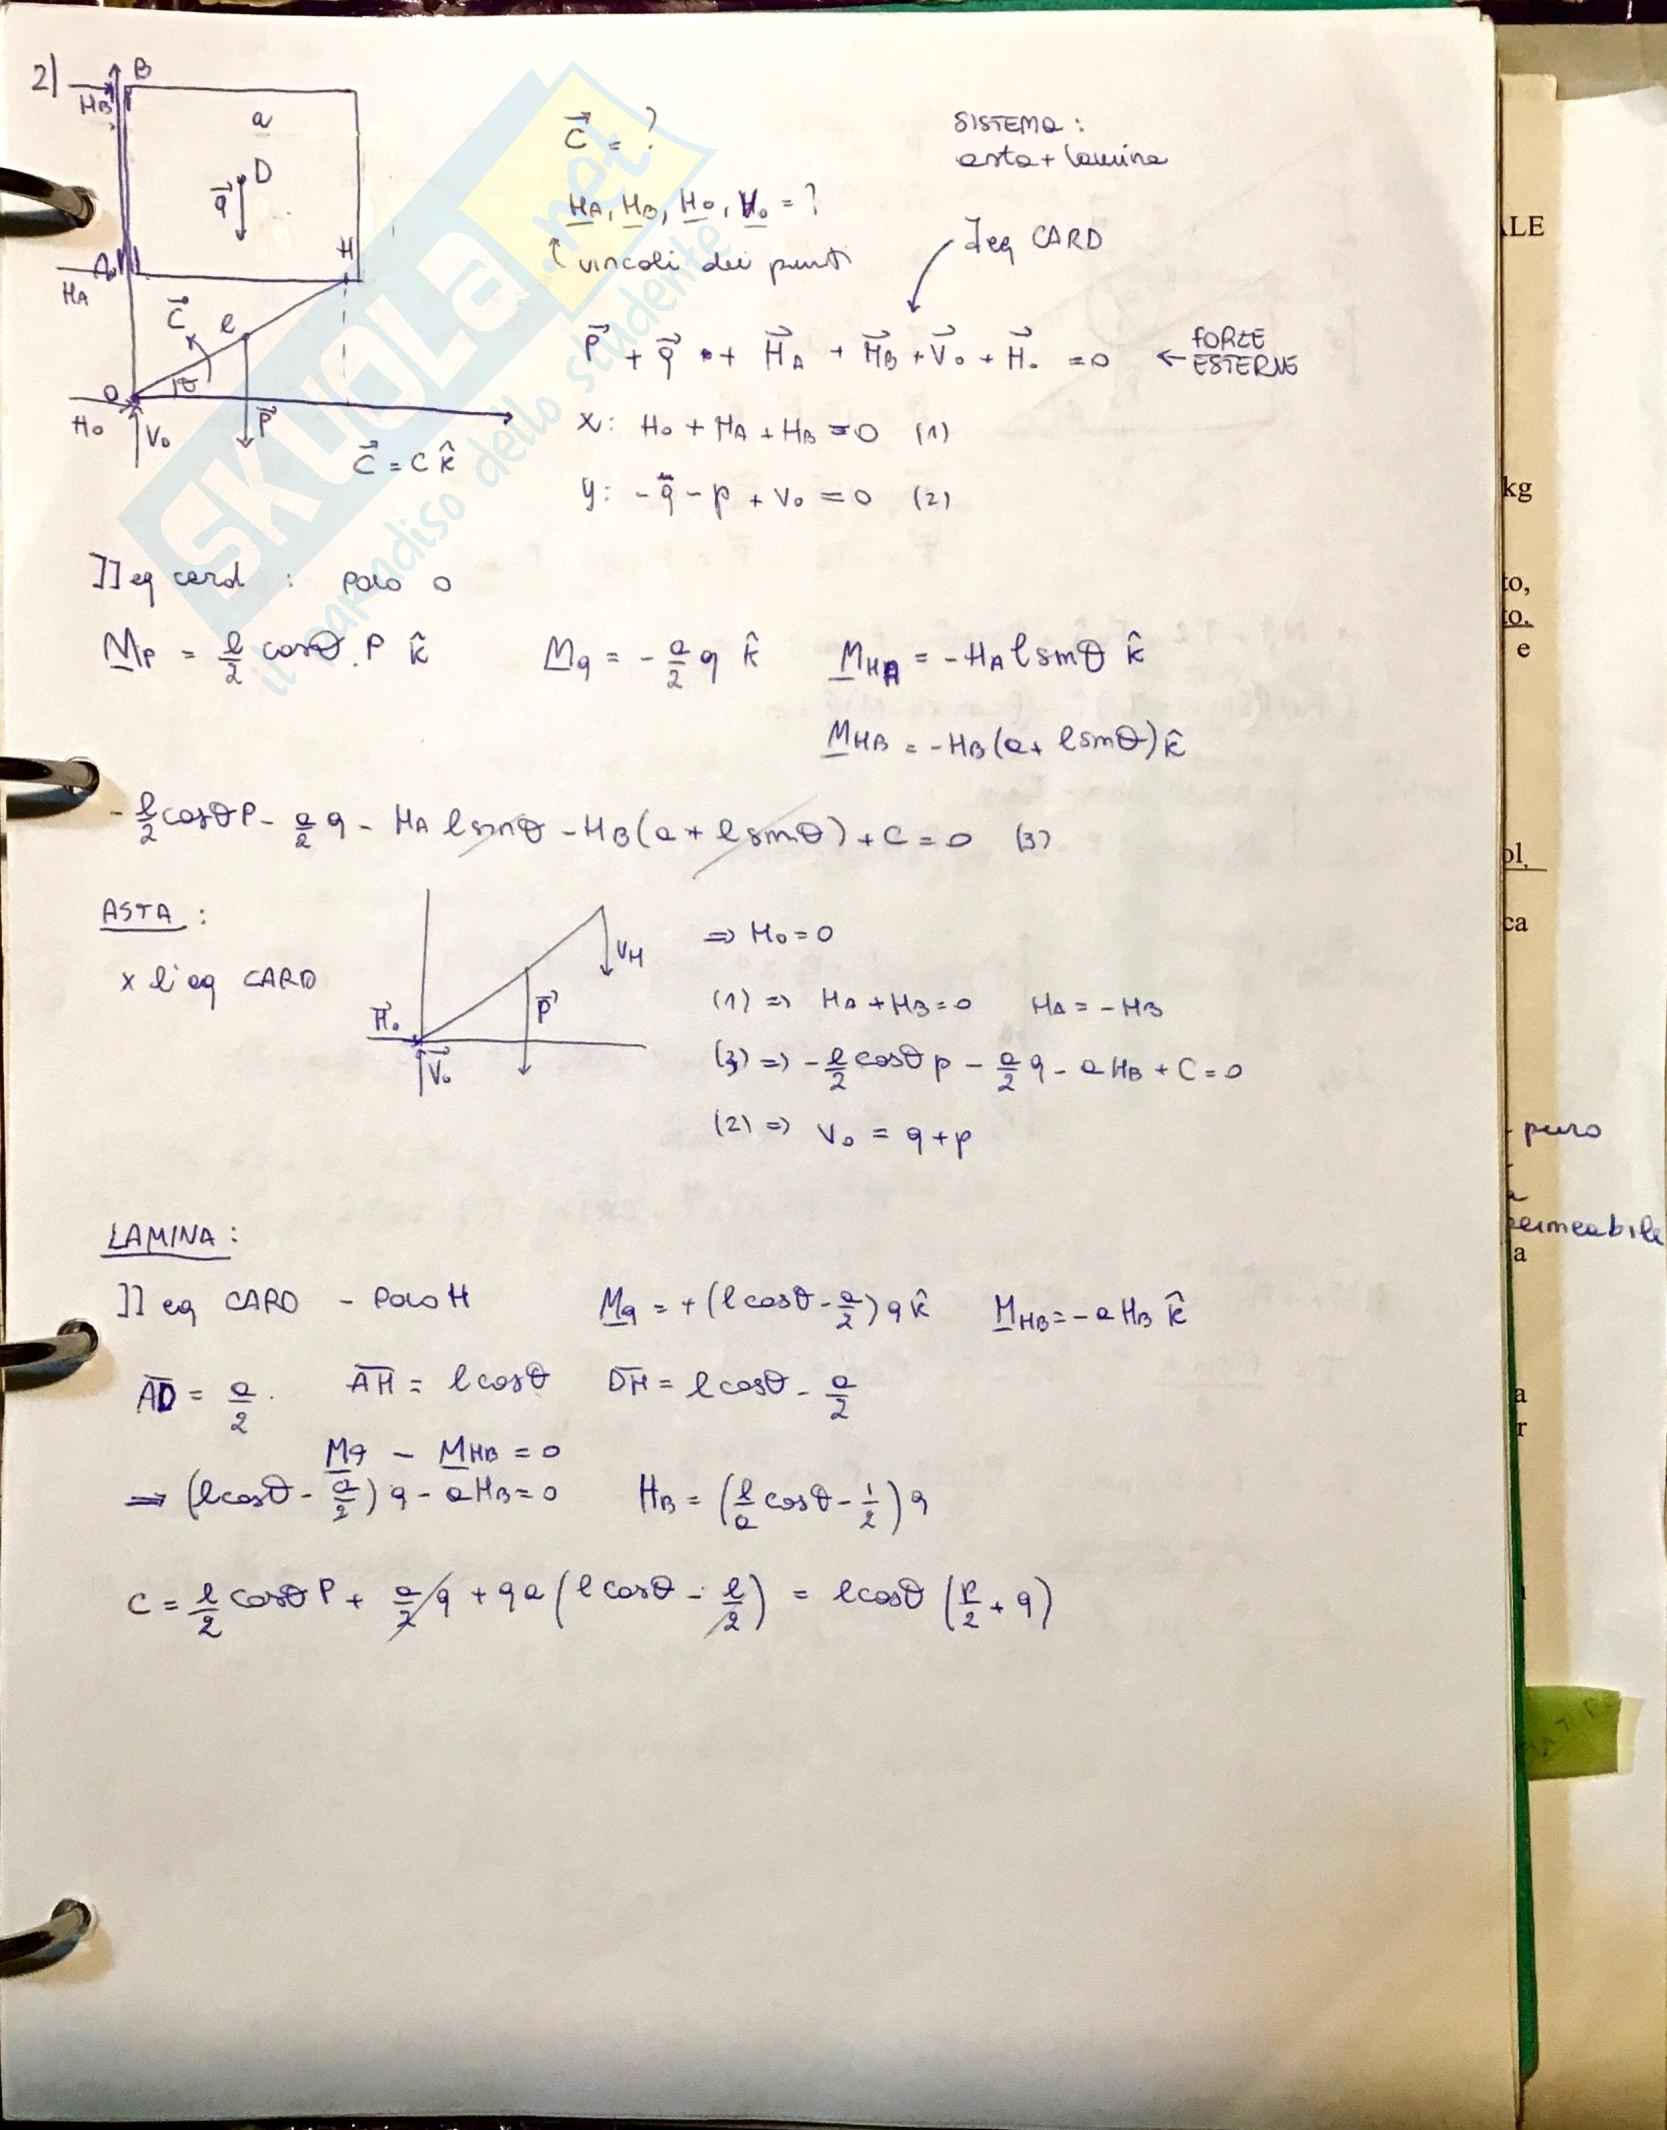 2)
B
HB
a
D
q⃗
A
H
HA
C⃗
l
θ
O
H₀
V₀
P⃗
C⃗ = C k̂
C⃗ = ?
HA, HB, H₀, V₀ = ?
↑ vincoli dei punti
SISTEMA :
asta + lamina
I eq CARD
P⃗ + q⃗ + H⃗A + H⃗B + V⃗₀ + H⃗₀ = 0 ← FORZE ESTERNE
x: H₀ + HA + HB = 0 (1)
y: - q - p + V₀ = 0 (2)
II eq card : polo O
MP = l/2 cosθ . P k̂ Mq = - a/2 q k̂ MHA = - HA l sinθ k̂
MHB = - HB (a + l sinθ) k̂
- l/2 cosθ P - a/2 q - HA l sinθ - HB (a + l sinθ) + C = 0 (3)
ASTA :
x I eq CARD
VH
P⃗
H⃗₀
V⃗₀
⇒ H₀ = 0
(1) ⇒ HA + HB = 0 HA = - HB
(3) ⇒ - l/2 cosθ p - a/2 q - a HB + C = 0
(2) ⇒ V₀ = q + p
LAMINA :
II eq CARD - Polo H Mq = + (l cosθ - a/2) q k̂ MHB = - a HB k̂
AD = a/2 . AH = l cosθ DH = l cosθ - a/2
Mq - MHB = 0
⇒ (l cosθ - a/2) q - a HB = 0 HB = (l/a cosθ - 1/2) q
C = l/2 cosθ P + a/2 q + q a (l cosθ - l/2) = l cosθ (P/2 + q)
SKUOLA.net
il paradiso dello studente
ALE
kg
to,
to.
e
ol,
ca
puro
permeabile
a
a
r